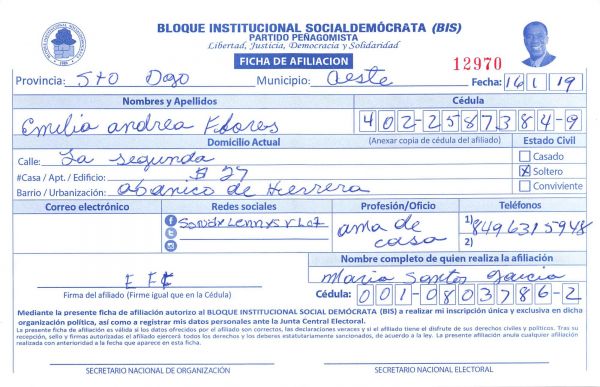 BLOQUE INSTITUCIONAL SOCIALDEMÓCRATA (BIS)
PARTIDO PEÑAGOMISTA
Libertad, Justicia, Democracia y Solidaridad
FICHA DE AFILIACION
12970
Provincia: Sto Dgo Municipio: Oeste Fecha: 16 1 19
Nombres y Apellidos Cédula
Emilia andrea Flores 402-2587384-9
Domicilio Actual (Anexar copia de cédula del afiliado) Estado Civil
Calle: La segunda Casado
#Casa / Apt. / Edificio: # 27 X Soltero
Barrio / Urbanización: abanico de Herrera Conviviente
Correo electrónico Redes sociales Profesión/Oficio Teléfonos
ama de casa 1) 8496315948
2)
Nombre completo de quien realiza la afiliación
E F Maria Santos Garcia
Firma del afiliado (Firme igual que en la Cédula) Cédula: 001-0803786-2
Mediante la presente ficha de afiliación autorizo al BLOQUE INSTITUCIONAL SOCIAL DEMÓCRATA (BIS) a realizar mi inscripción única y exclusiva en dicha
organización política, así como a registrar mis datos personales ante la Junta Central Electoral.
La presente ficha de afiliación es válida si los datos ofrecidos por el afiliado son correctos, las declaraciones veraces y si el afiliado tiene el disfrute de sus derechos civiles y políticos. Tras su
recepción, sello y firmas autorizadas el afiliado ejercerá todos los derechos y los deberes estatutariamente sancionados, de acuerdo a la ley. La presente afiliación anula cualquier afiliación
realizada con anterioridad a la fecha que aparece en esta ficha.
SECRETARIO NACIONAL DE ORGANIZACIÓN SECRETARIO NACIONAL ELECTORAL